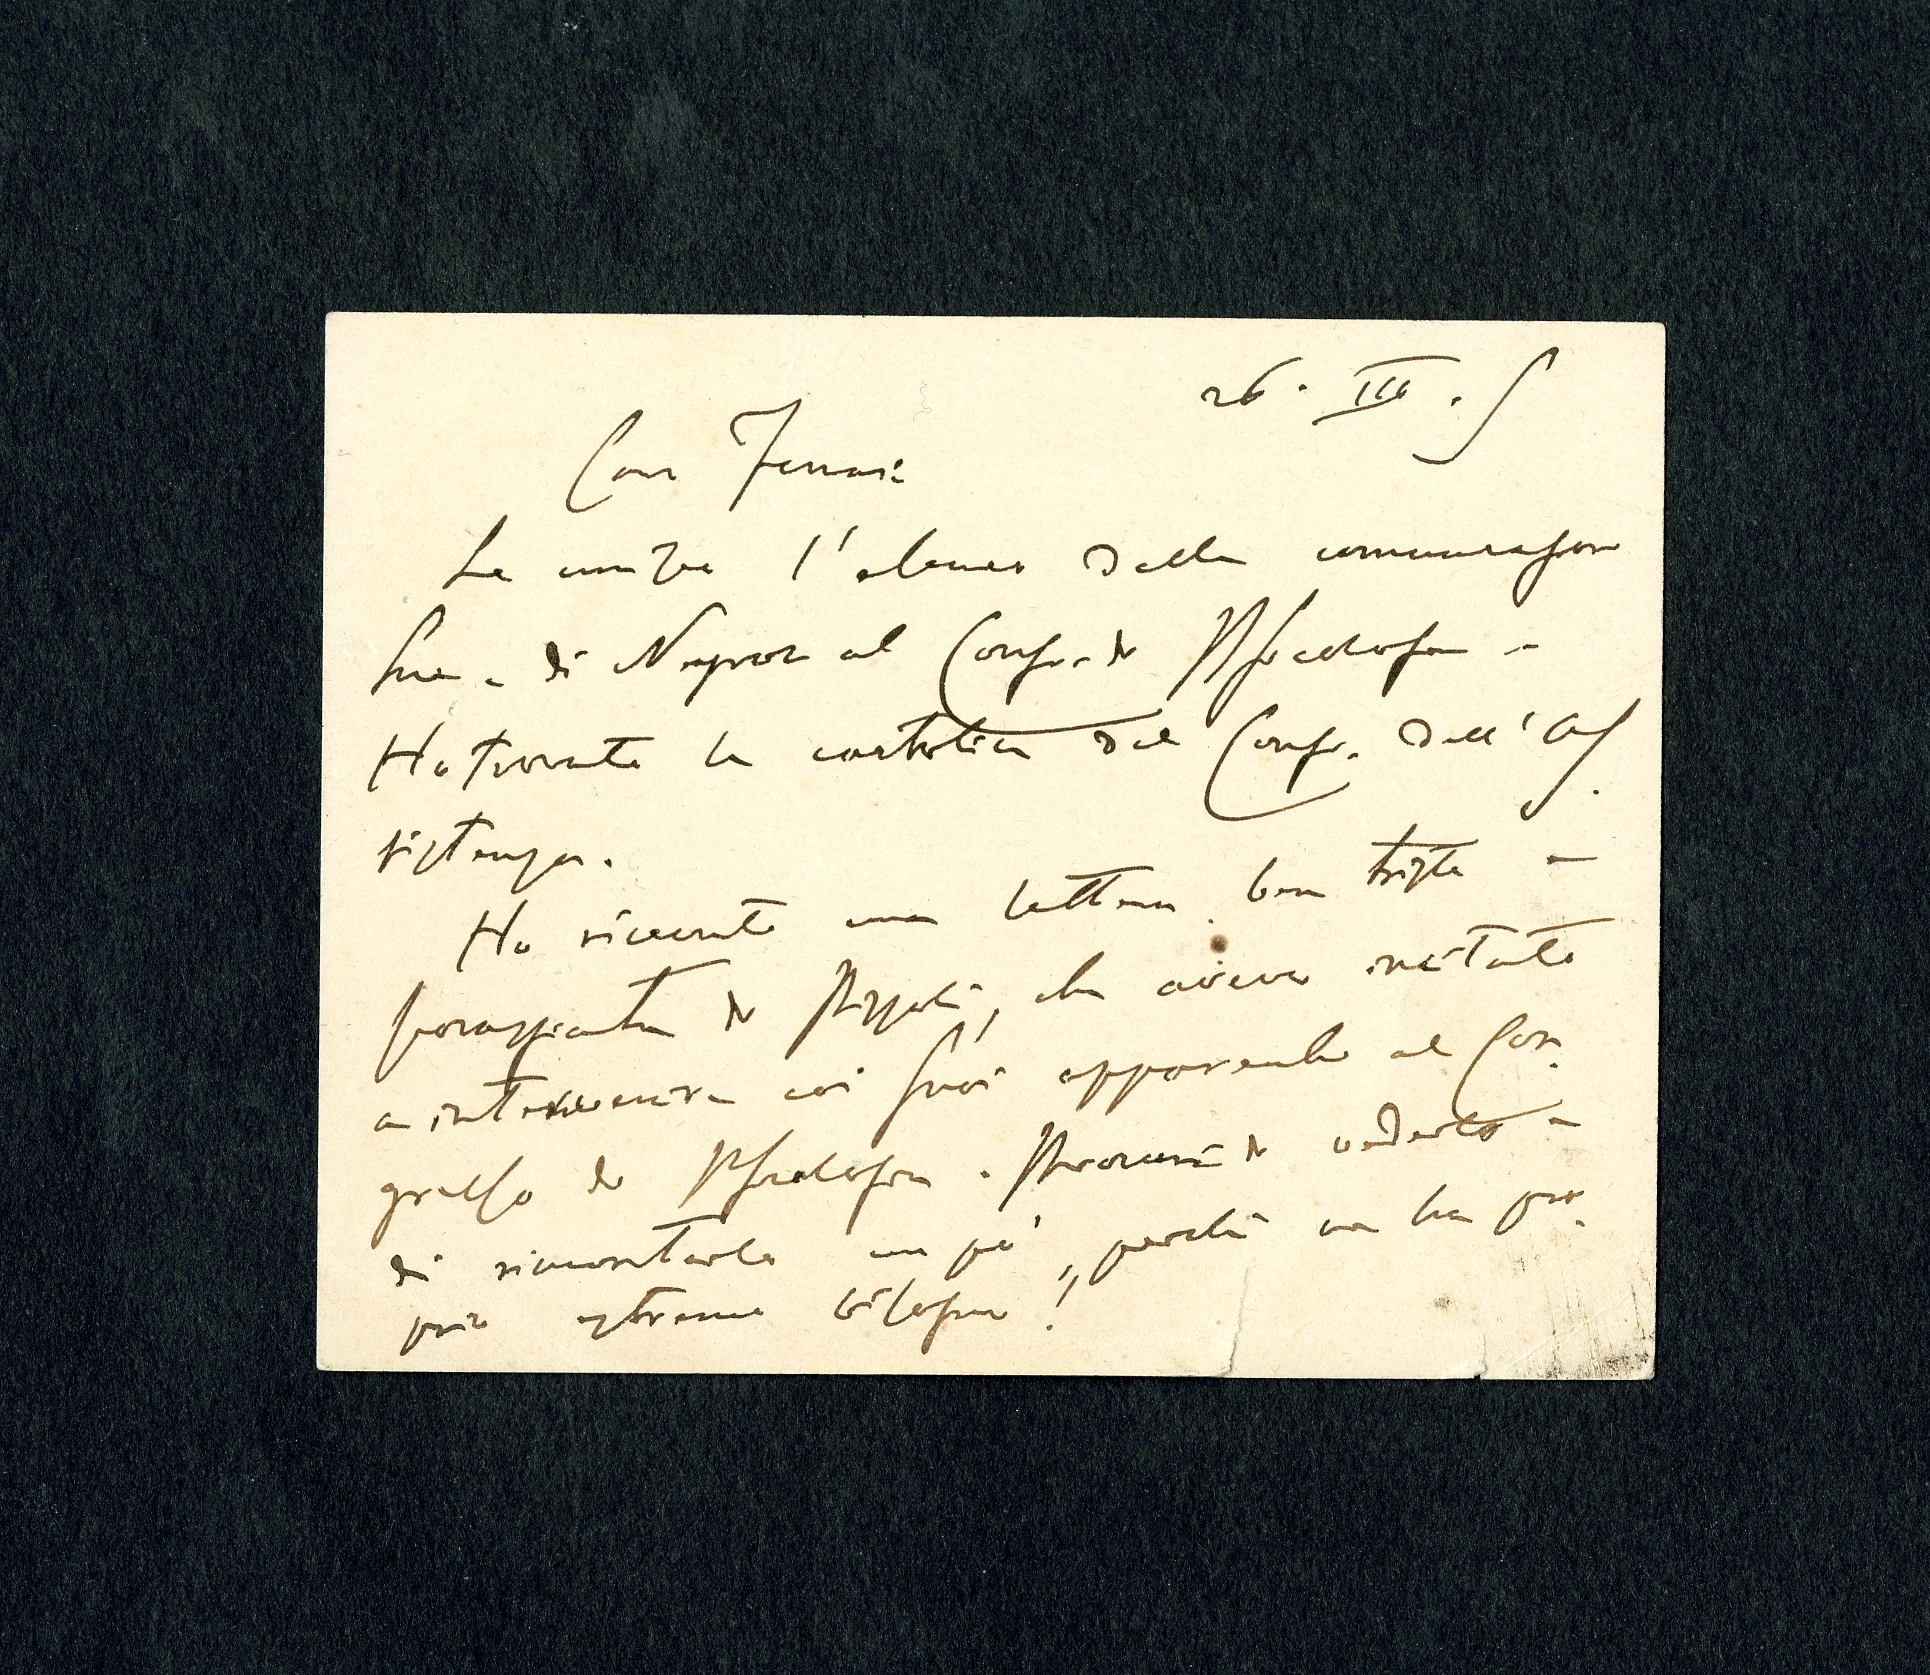 26. III. 5
Caro Ferrari
Le unisco l'elenco delle comunicazioni
sue e di Neyroz al Congr. di Psicologia -
Ho trovato la cartolina del Congr. dell'As
sistenza.
Ho ricevuto una lettera ben triste e
scoraggiata di Pizzoli, che avevo invitato
a intervenire coi suoi apparecchi al Con
gresso di Psicologia. Procuri di vederlo e
di riconfortarlo un po', perché ne ha pro
prio estremo bisogno!